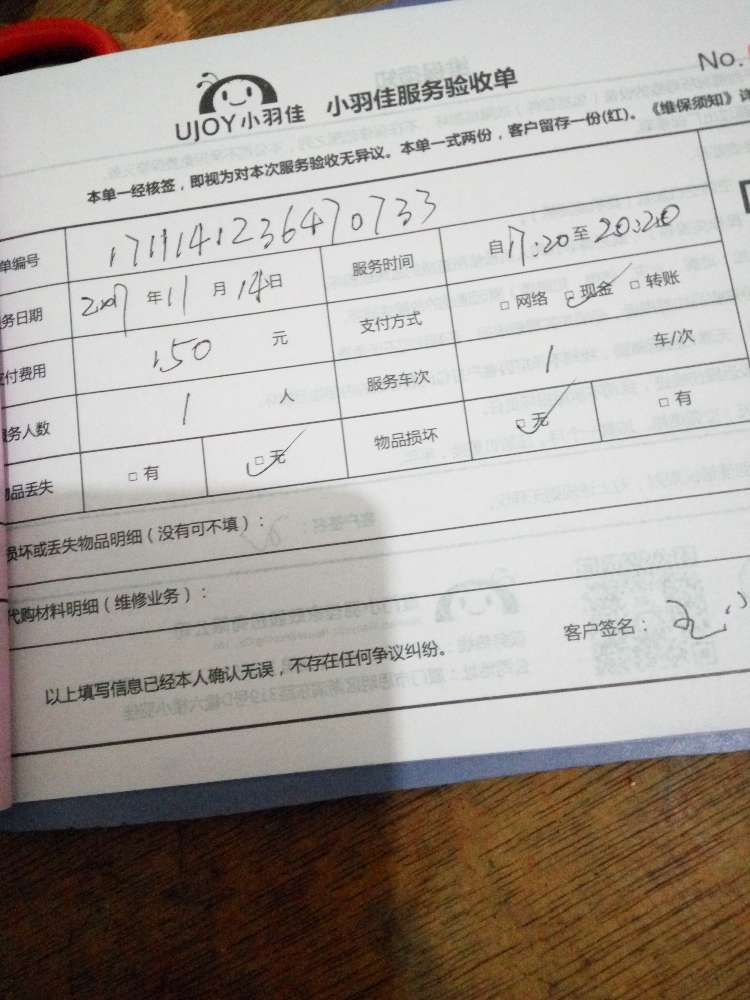 No.
UJOY小羽佳 小羽佳服务验收单
本单一经核签，即视为对本次服务验收无异议。本单一式两份，客户留存一份(红)。《维保须知》详
单编号 1711141236470733 服务时间 自17:20至20:20
务日期 2017年11月14日 支付方式 □网络 □现金 □转账
应付费用 150 元 服务车次 1 车/次
服务人数 1 人 物品损坏 □无 □有
物品丢失 □有 □无
损坏或丢失物品明细（没有可不填）：
代购材料明细（维修业务）：
以上填写信息已经本人确认无误，不存在任何争议纠纷。 客户签名：